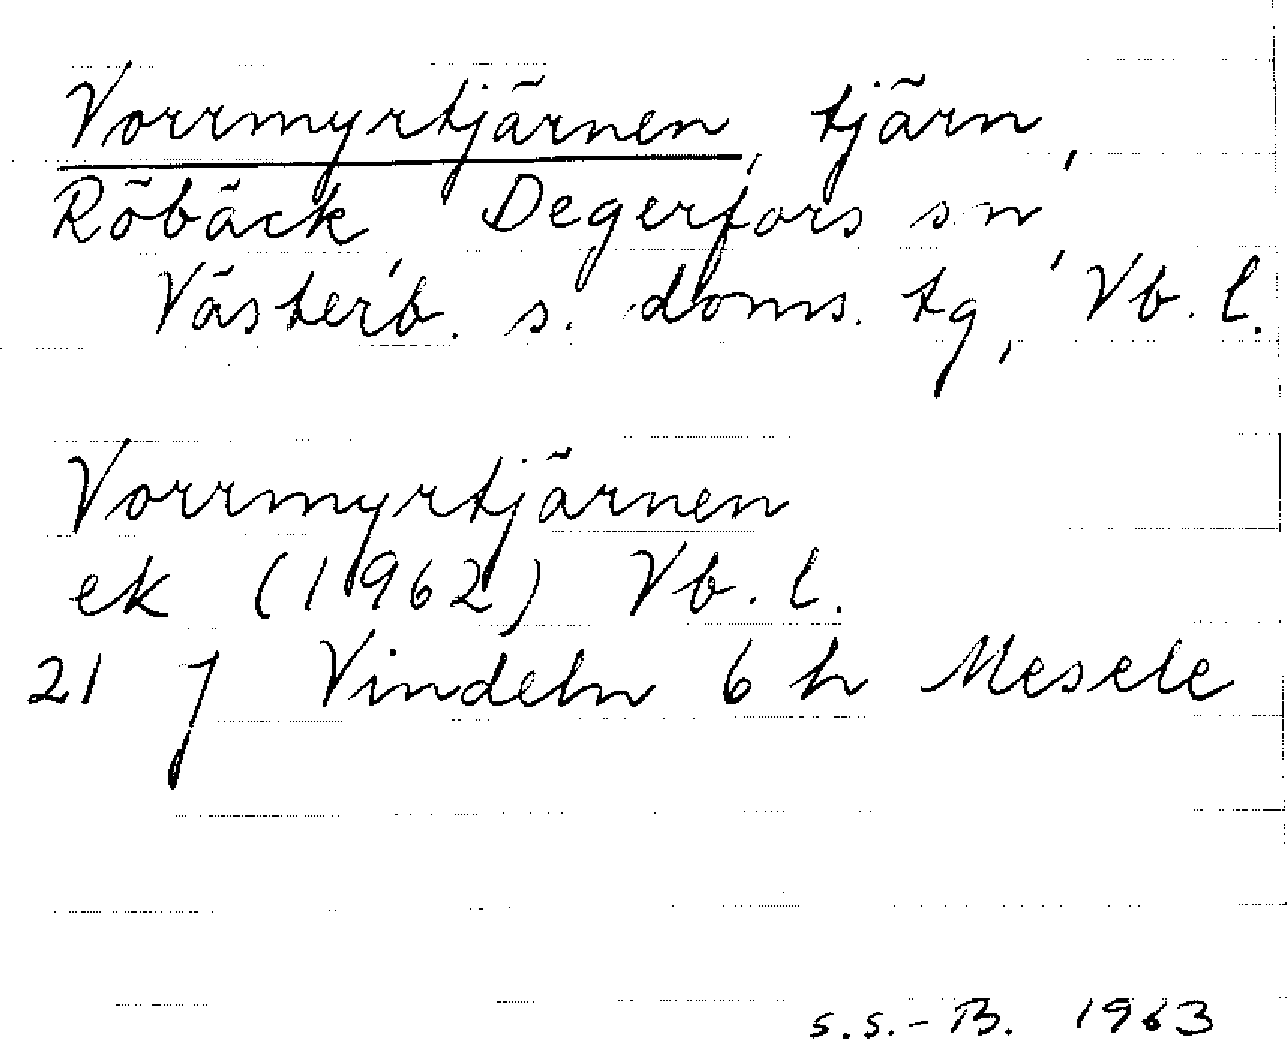 Vorrmyrtjärnen, tjärn,
Röbäck, Degerfors sn,
Västerb. s. doms. tg, Vb. l.
Vorrmyrtjärnen
ek (1962) Vb. l.
21 J Vindeln 6 h Mesele
S.S.-B. 1963